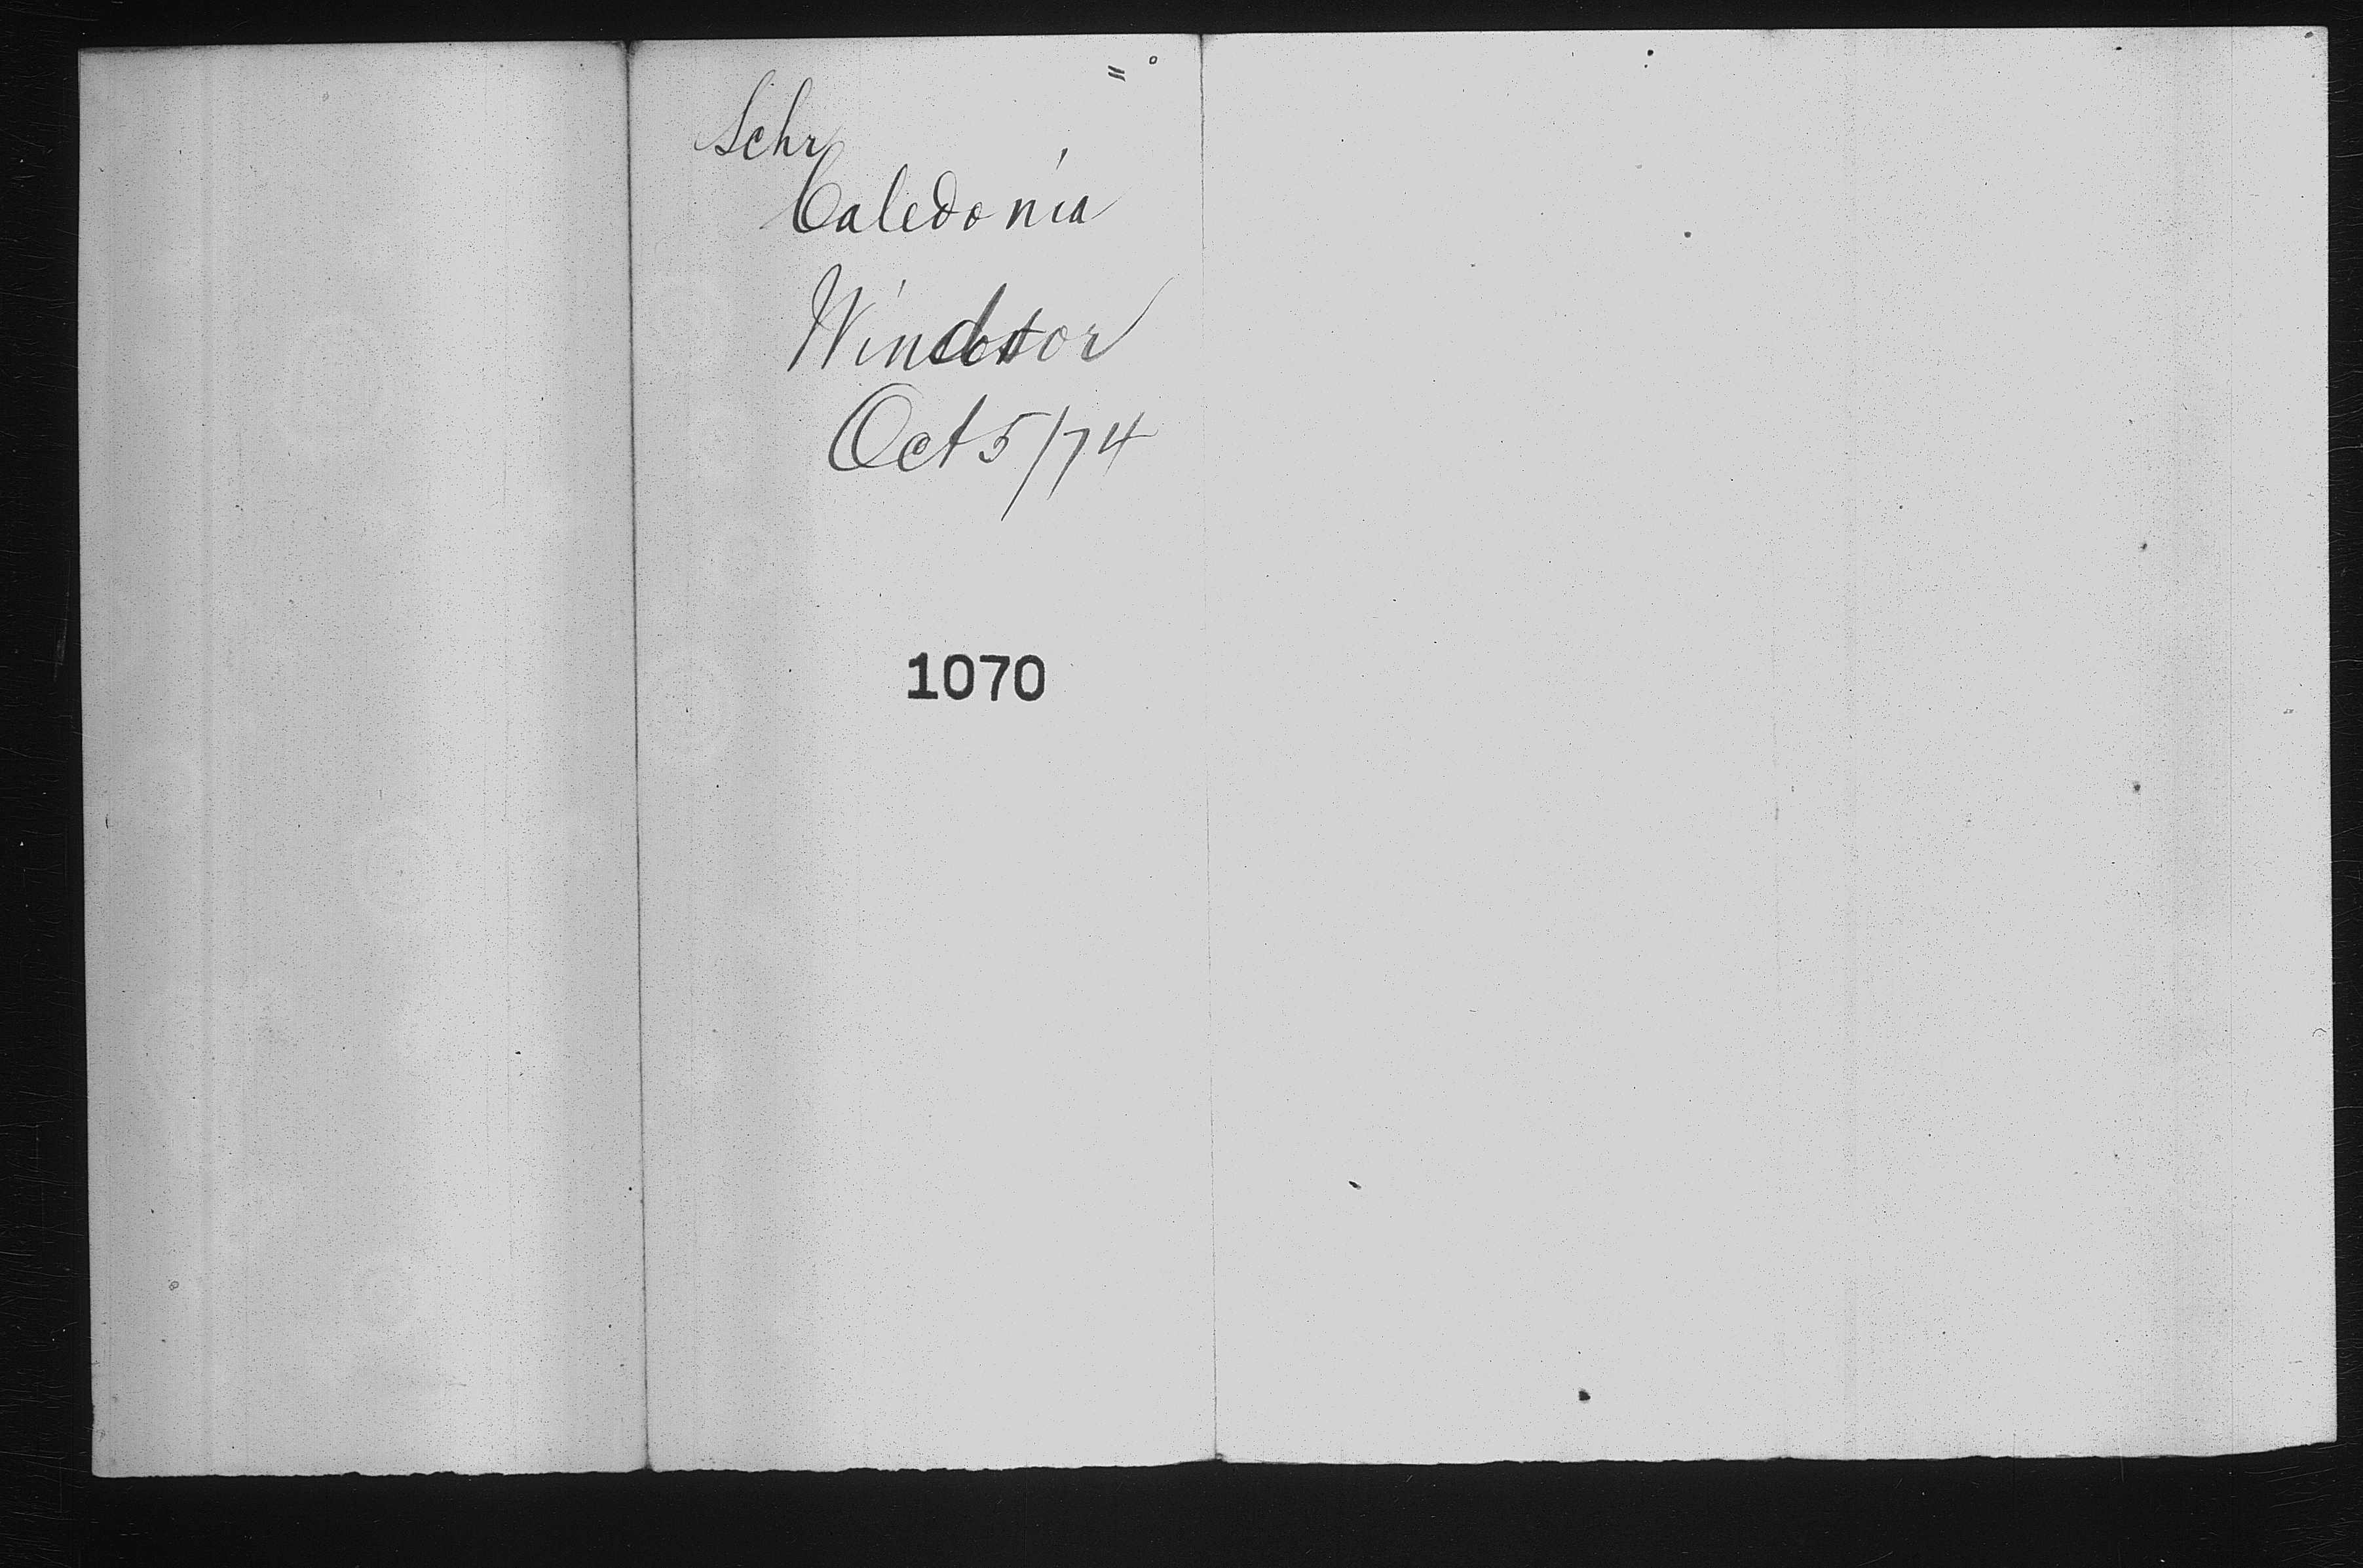 Schr
Caledonia
Windsor
Oct 5/74
1070